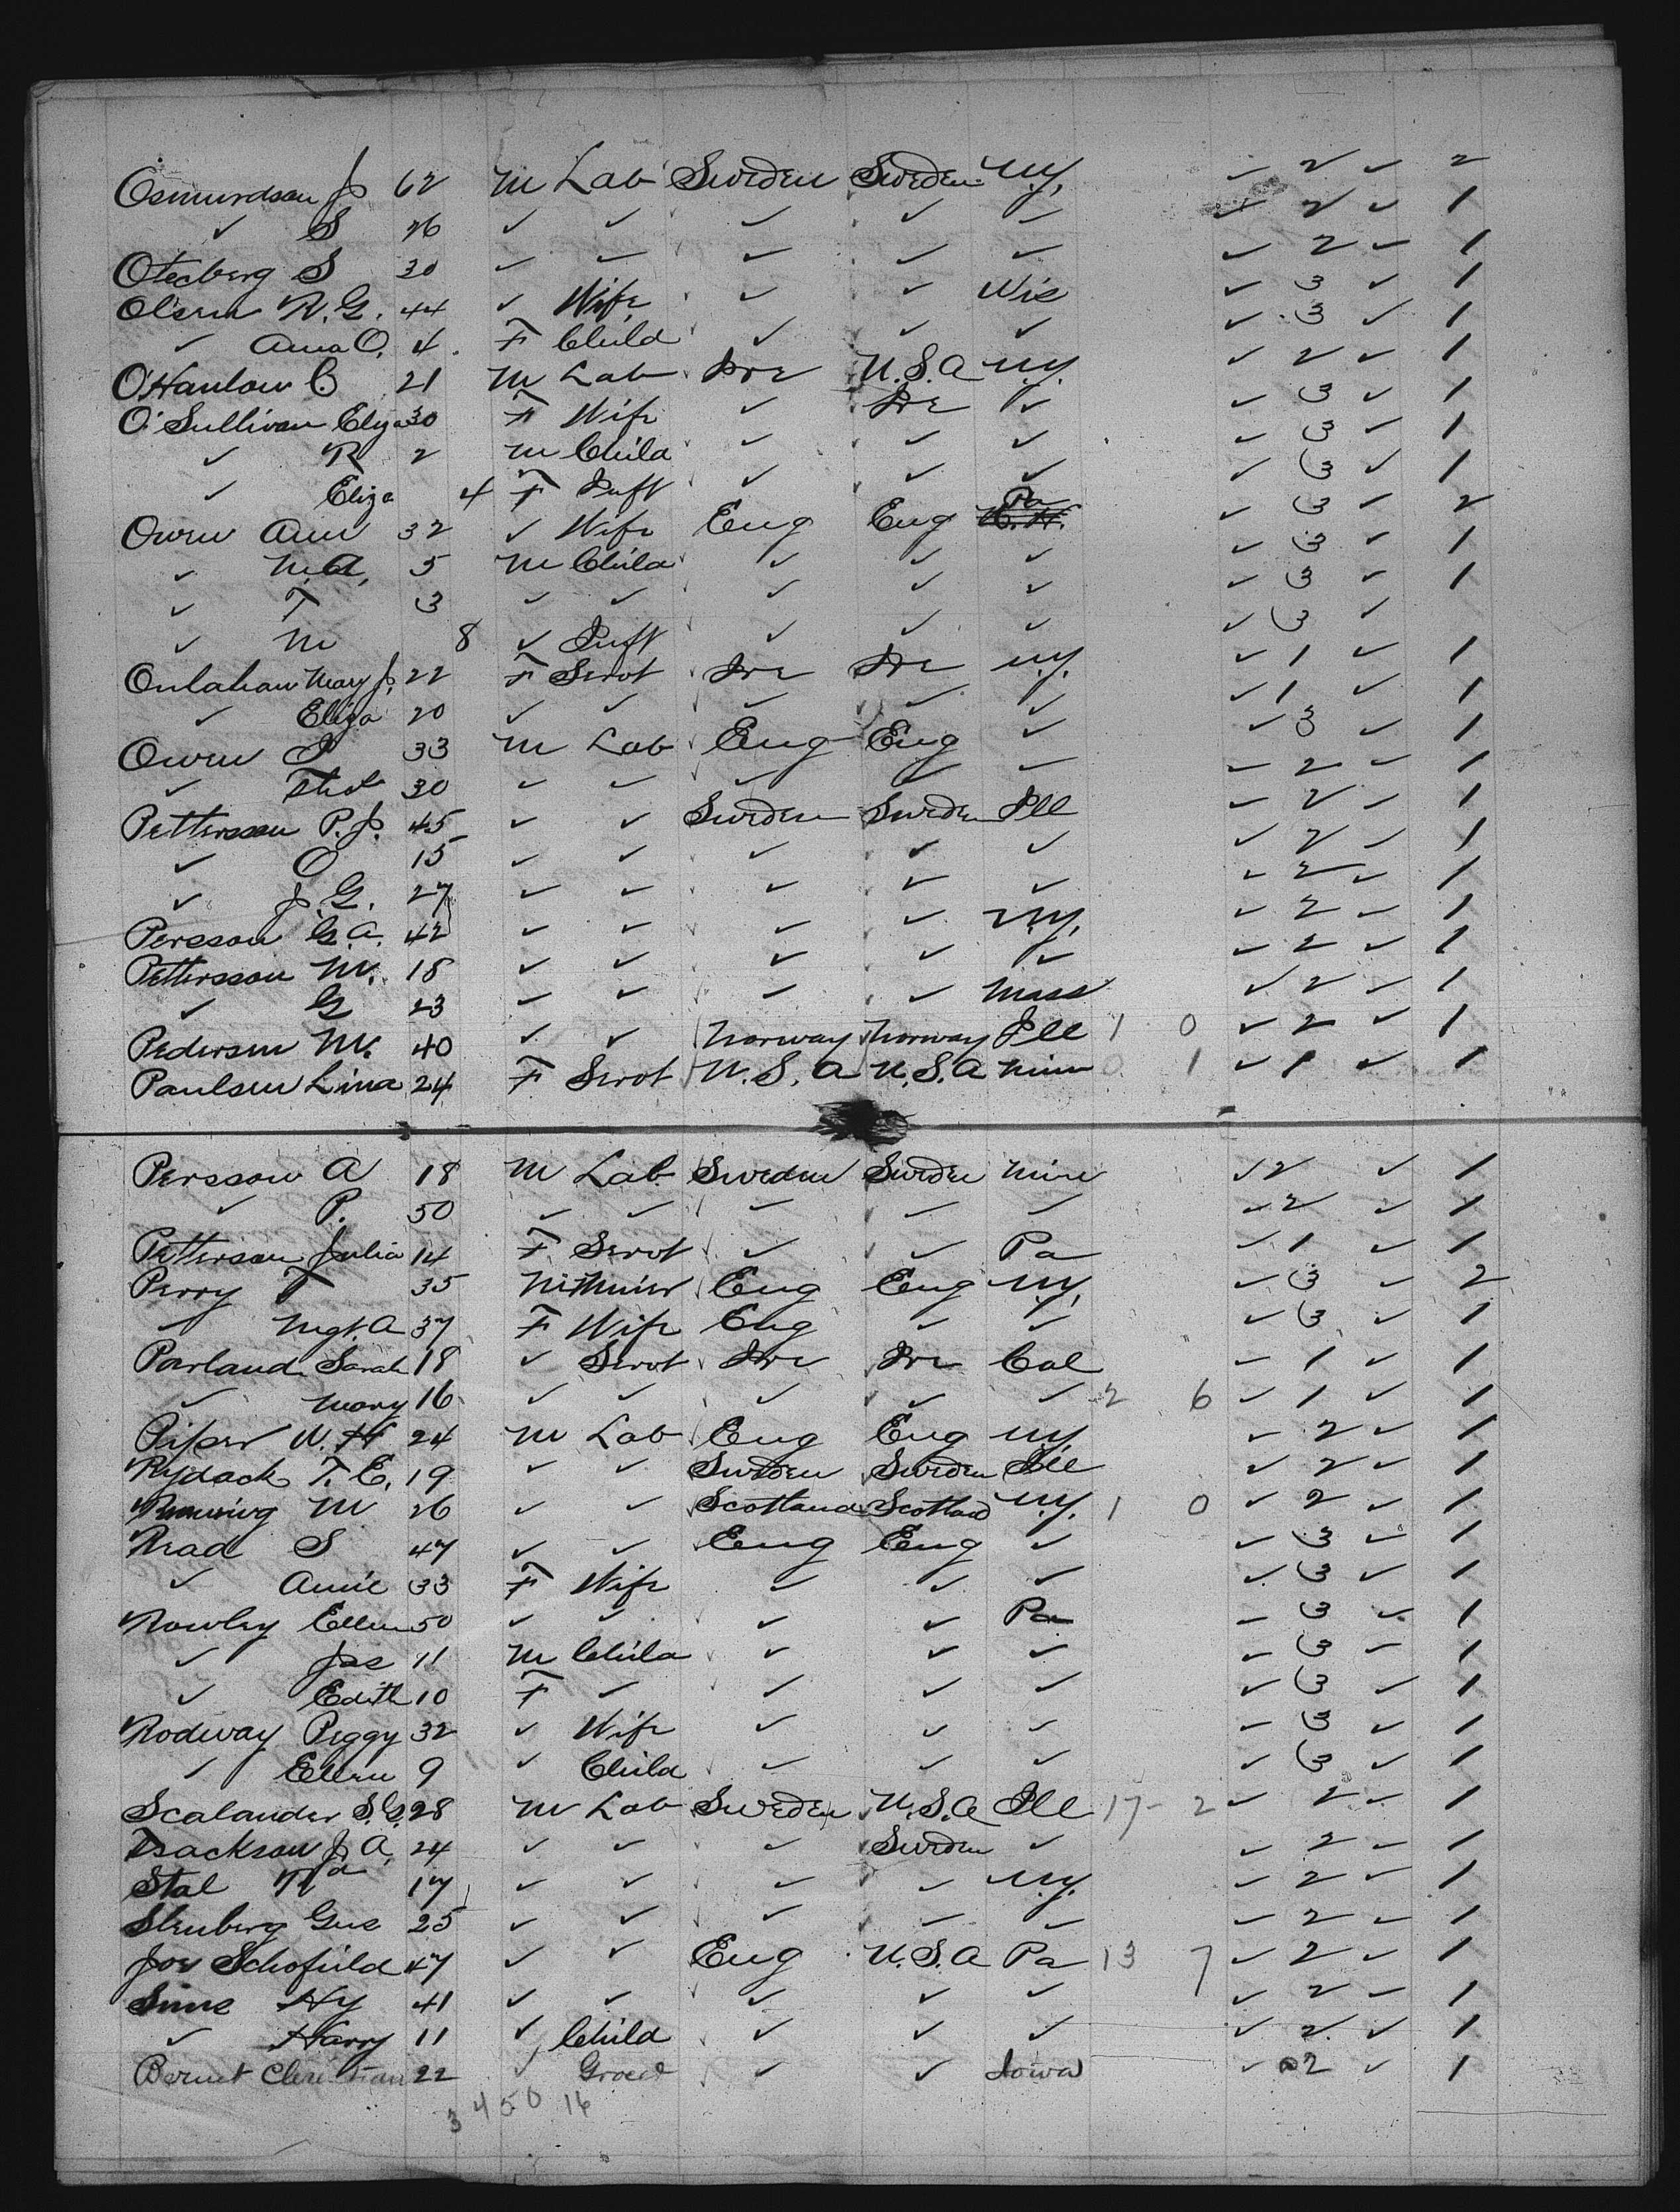 Osmundson J 62 M Lab Sweden Sweden N.Y. ✓ 2 ✓ 2
✓ S 26 ✓ ✓ ✓ ✓ ✓ ✓ 2 ✓ 1
Otecberg S 30 ✓ ✓ ✓ ✓ ✓ ✓ 2 ✓ 1
Olsen N.G. 44 ✓ Wife ✓ ✓ Wis ✓ 3 ✓ 1
✓ Anna O. 4 F Child ✓ ✓ ✓ ✓ 3 ✓ 1
O'Hanlow C 21 M Lab Ire U.S.A N.Y. ✓ 2 ✓ 1
O'Sullivan Eliza 30 F Wife ✓ Ire ✓ ✓ 3 ✓ 1
✓ R 2 M Child ✓ ✓ ✓ ✓ 3 ✓ 1
✓ Eliza 4 F Inft ✓ ✓ ✓ ✓ 3 ✓ 1
Owen Ann 32 ✓ Wife Eng Eng Pa ✓ 3 ✓ 2
✓ M.A. 5 M Child ✓ ✓ ✓ ✓ 3 ✓ 1
✓ T 3 ✓ ✓ ✓ ✓ ✓ ✓ 3 ✓ 1
✓ M 8 ✓ Inft ✓ ✓ ✓ ✓ 3 ✓
Oulahan Mary J. 22 F Servt Ire Ire N.Y. ✓ 1 ✓ 1
✓ Eliza 20 ✓ ✓ ✓ ✓ ✓ ✓ 1 ✓ 1
Owen J 33 M Lab Eng Eng ✓ ✓ 3 ✓ 1
✓ 30 ✓ ✓ ✓ ✓ ✓ ✓ 2 ✓ 1
Pettersson P.J. 45 ✓ ✓ Sweden Sweden Ill ✓ 2 ✓ 1
✓ O 15 ✓ ✓ ✓ ✓ ✓ ✓ 2 ✓ 1
✓ J.G. 27 ✓ ✓ ✓ ✓ ✓ ✓ 2 ✓ 1
Persson G.A. 42 ✓ ✓ ✓ ✓ N.Y. ✓ 2 ✓ 1
Pettersson M. 18 ✓ ✓ ✓ ✓ ✓ ✓ 2 ✓ 1
✓ G 23 ✓ ✓ ✓ ✓ Mass ✓ 2 ✓ 1
Pedersen M. 40 ✓ ✓ Norway Norway Ill 1 0 ✓ 2 ✓ 1
Paulsen Lina 24 F Servt U.S.A U.S.A Minn 0 1 ✓ 1 ✓ 1
Persson A 18 M Lab Sweden Sweden Minn ✓ 2 ✓ 1
✓ P. 50 ✓ ✓ ✓ ✓ ✓ ✓ 2 ✓ 1
Petterson Julia 14 F Servt ✓ ✓ Pa ✓ 1 ✓ 1
Perry T 35 M Miner Eng Eng N.Y. ✓ 3 ✓ 2
✓ Mgt. A 37 F Wife Eng ✓ ✓ ✓ 3 ✓ 1
Parland Sarah 18 ✓ Servt Ire Ire Cal ✓ 1 ✓ 1
✓ Mary 16 ✓ ✓ ✓ ✓ ✓ 2 6 ✓ 1 ✓ 1
Piper W. H 24 M Lab Eng Eng N.Y. ✓ 2 ✓ 1
Rydack T. E. 19 ✓ ✓ Sweden Sweden Ill ✓ 2 ✓ 1
M 26 ✓ ✓ Scotland Scotland N.Y. 1 0 ✓ 2 ✓ 1
Read S 47 ✓ ✓ Eng Eng ✓ ✓ 3 ✓ 1
✓ Annie 33 F Wife ✓ ✓ ✓ ✓ 3 ✓ 1
Rowley Ellen 50 ✓ ✓ ✓ ✓ Pa ✓ 3 ✓ 1
✓ Jas 11 M Child ✓ ✓ ✓ ✓ 3 ✓ 1
✓ Edith 10 F ✓ ✓ ✓ ✓ ✓ 3 ✓ 1
Rodway Peggy 32 ✓ Wife ✓ ✓ ✓ ✓ 3 ✓ 1
✓ Ellen 9 ✓ Child ✓ ✓ ✓ ✓ 3 ✓ 1
Scalander S.G. 28 M Lab Sweden U.S.A Ill 17 - 2 ✓ 2 ✓ 1
Isackson J A, 24 ✓ ✓ ✓ Sweden ✓ ✓ 2 ✓ 1
Stal 17 ✓ ✓ ✓ ✓ N.Y. ✓ 2 ✓ 1
Stenberg Gus 25 ✓ ✓ ✓ ✓ ✓ ✓ 2 ✓ 1
Jos Schofield 47 ✓ ✓ Eng U.S.A Pa 13 7 ✓ 2 ✓ 1
Sims Hy 41 ✓ ✓ ✓ ✓ ✓ ✓ 2 ✓ 1
✓ Harry 11 ✓ Child ✓ ✓ ✓ ✓ 2 ✓ 1
Bernet Christian 22 ✓ Grocer ✓ ✓ Iowa ✓ 2 ✓ 1
3 4 5 0 16